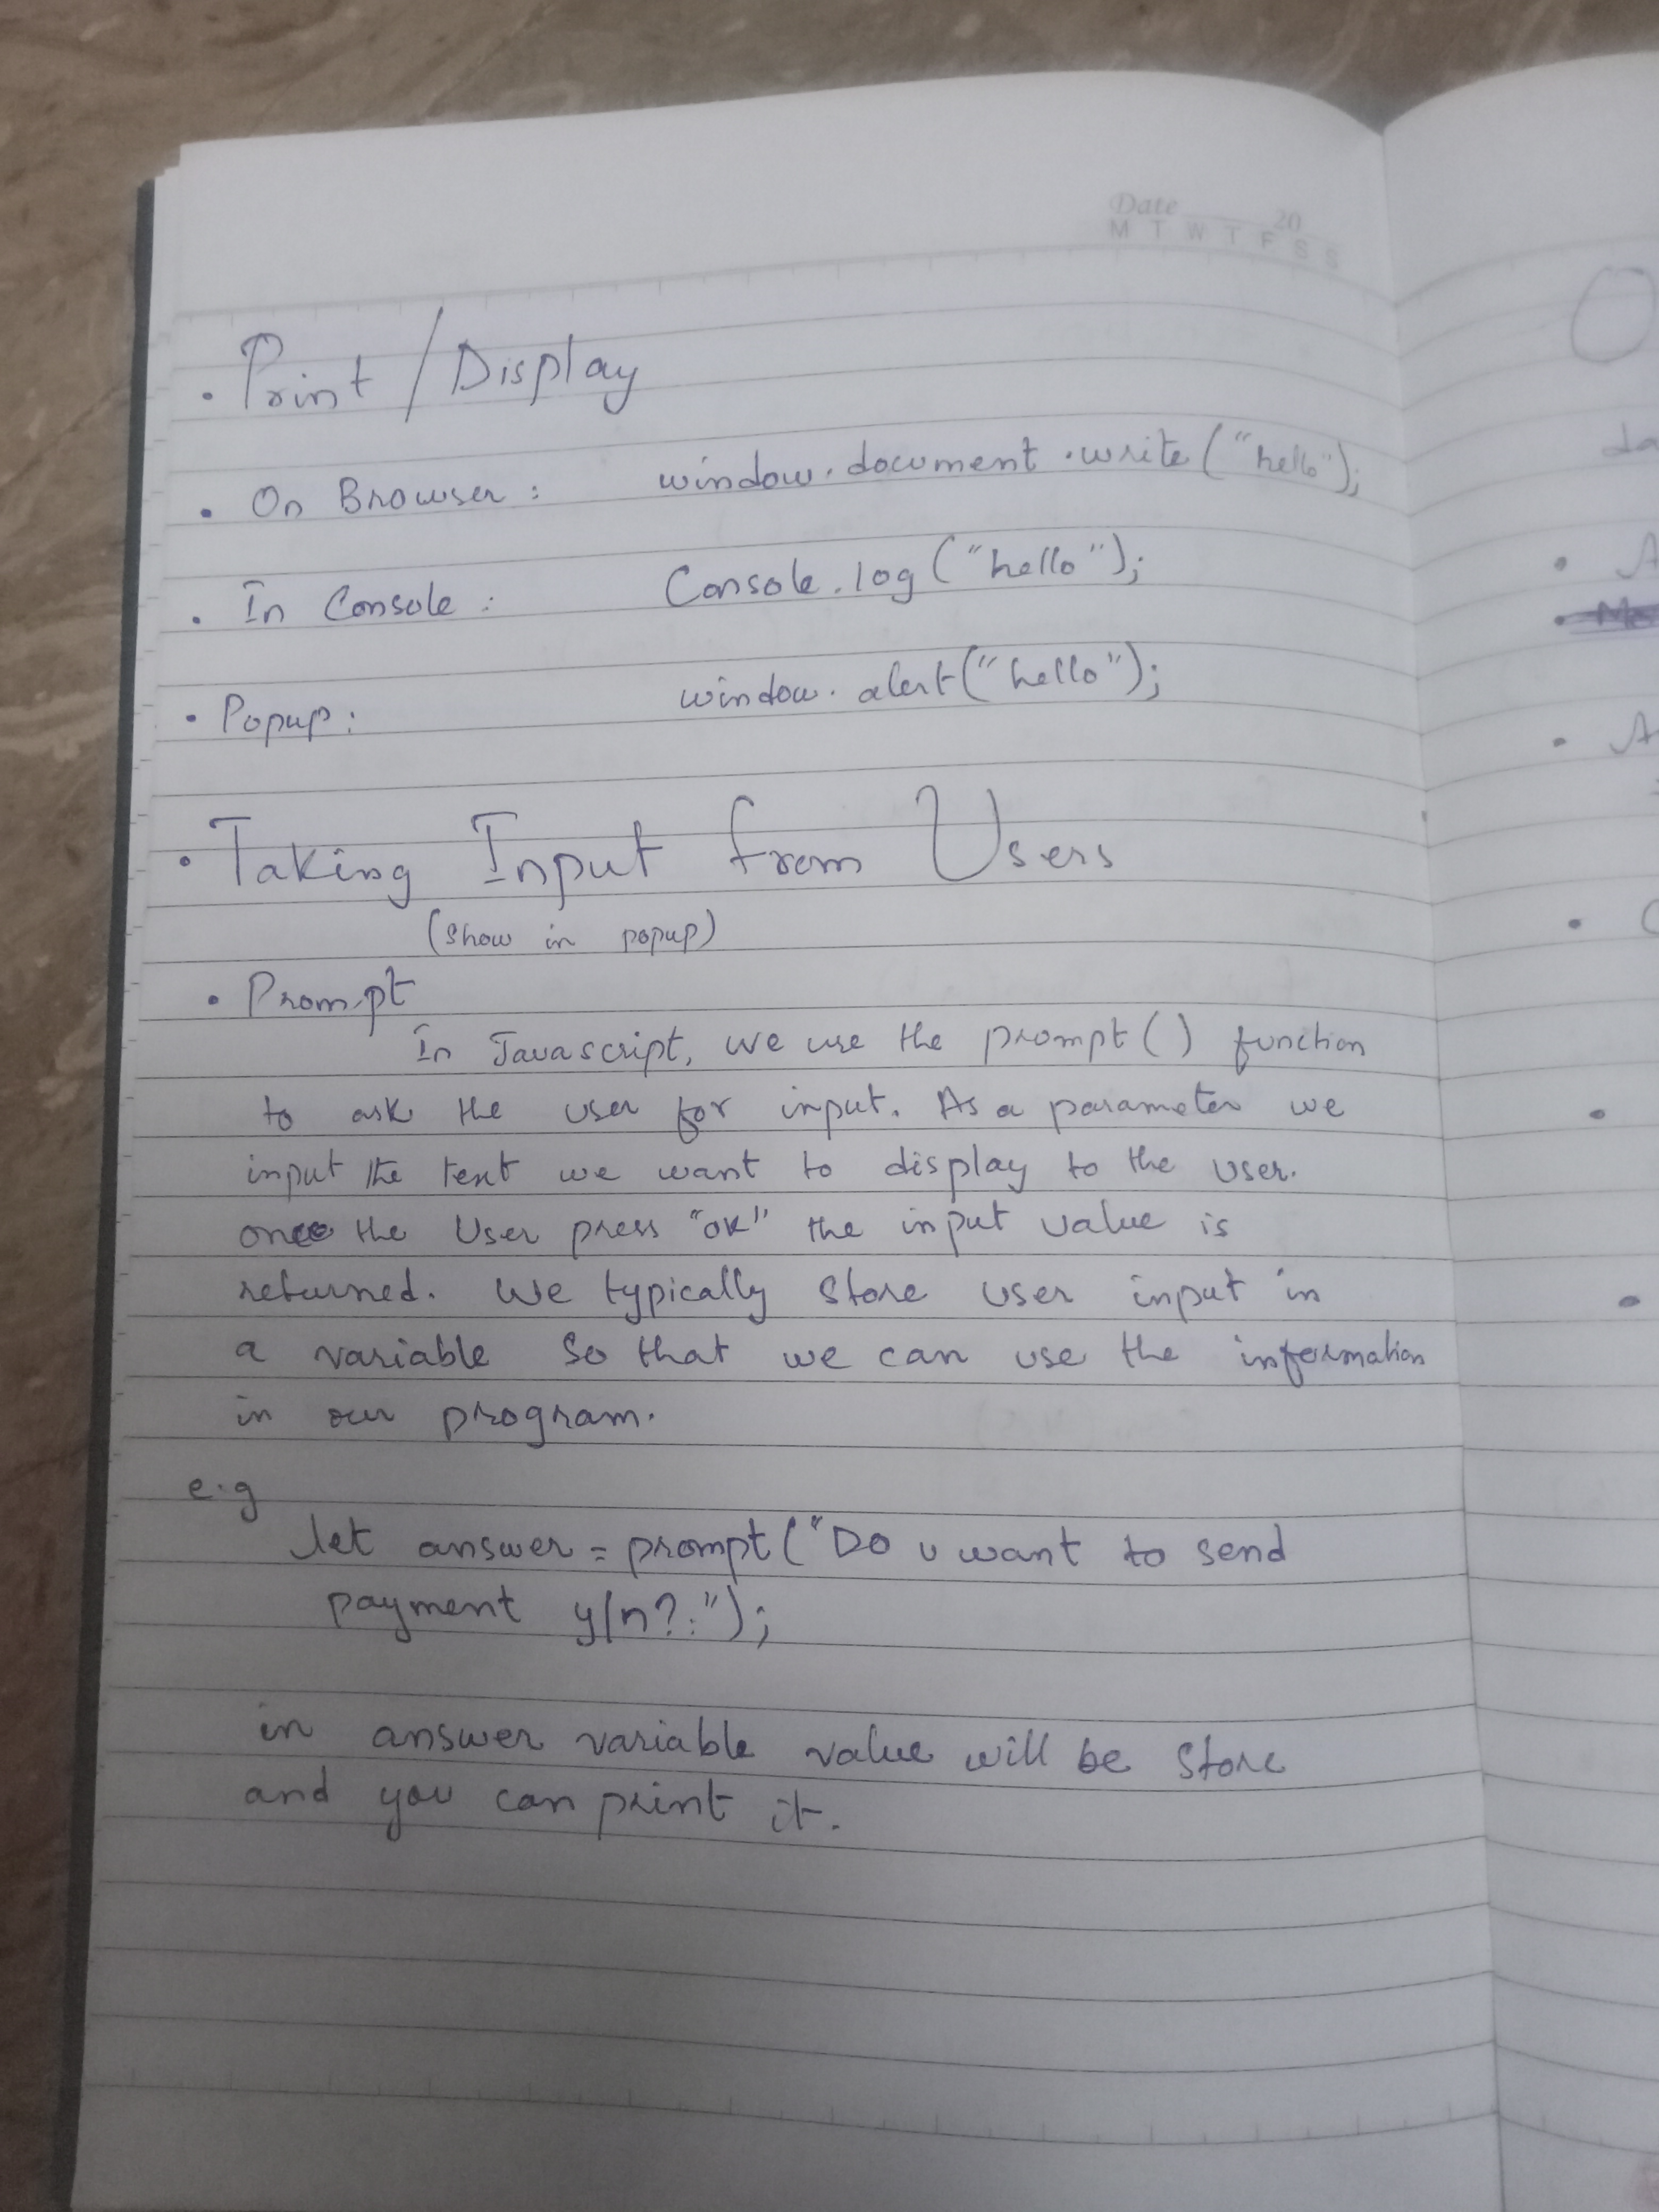 Date 20
M T W T F S S
• Print / Display
• On Browser : window.document.write("hello");
• In Console : Console.log("hello");
• Popup : window.alert("hello");
• Taking Input from Users
(show in popup)
• Prompt
In Javascript, we use the prompt() function
to ask the user for input. As a parameter we
input the text we want to display to the user.
once the User press "ok" the input value is
returned. We typically store user input in
a variable so that we can use the information
in our program.
e.g
let answer = prompt("Do u want to send
payment y/n?:");
in answer variable value will be store
and you can print it.